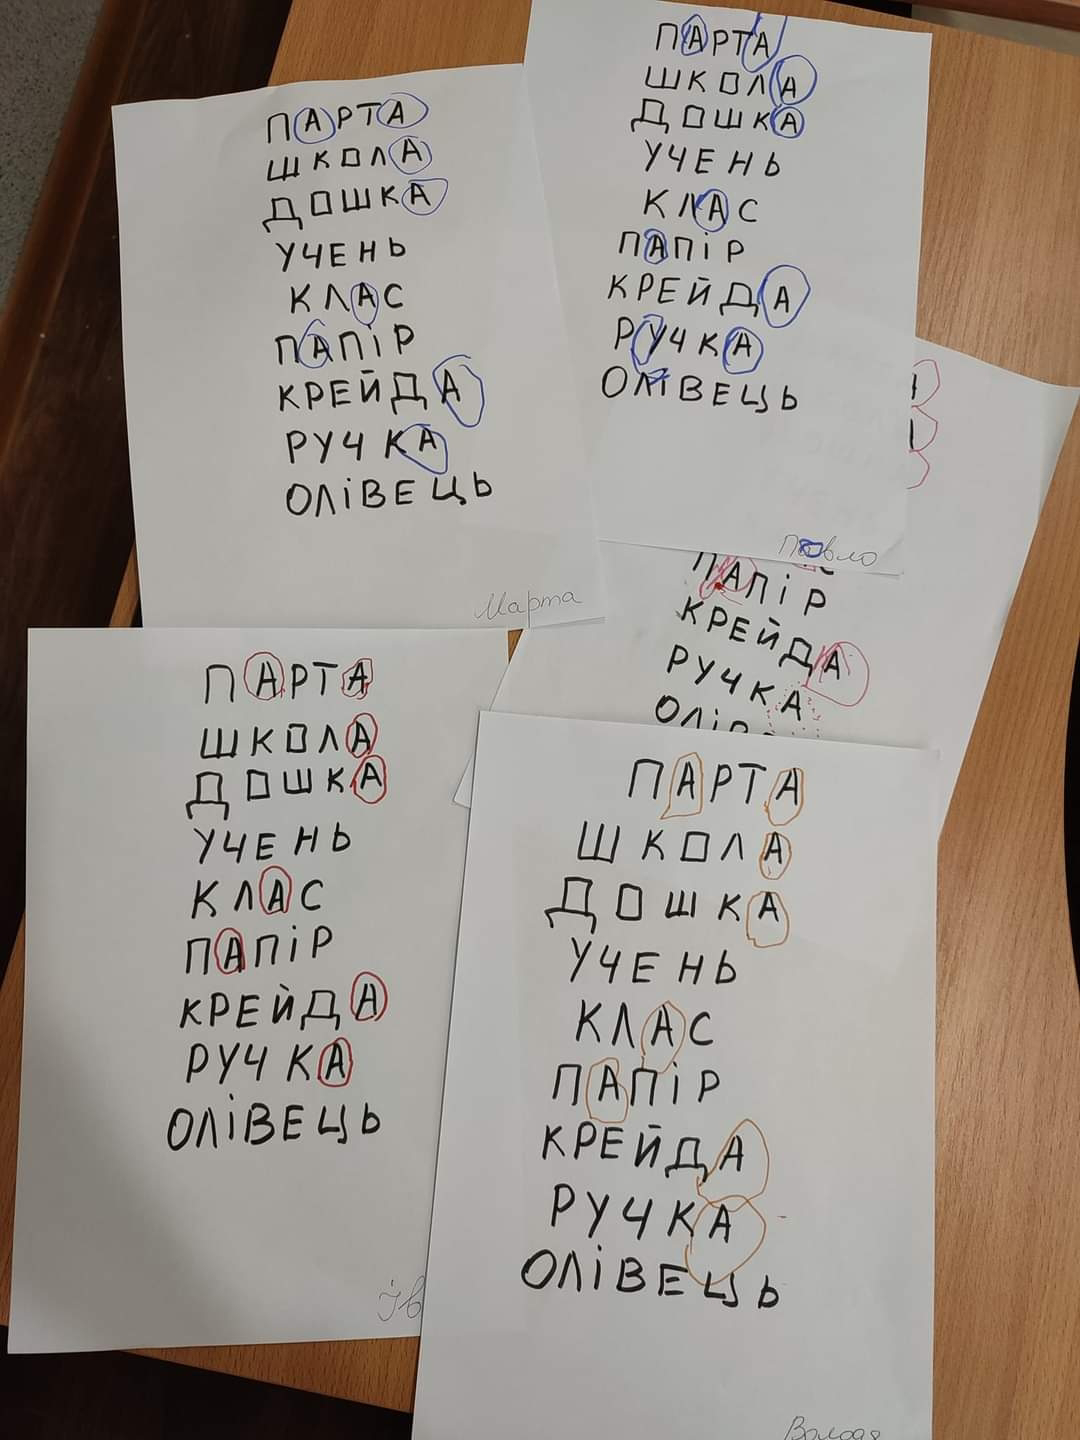 ПАРТА
ШКОЛА
ДОШКА
УЧЕНЬ
КЛАС
ПАПІР
КРЕЙДА
РУЧКА
ОЛІВЕЦЬ
Марта
ПАРТА
ШКОЛА
ДОШКА
УЧЕНЬ
КЛАС
ПАПІР
КРЕЙДА
РУЧКА
ОЛІВЕЦЬ
Павло
ПАПІР
КРЕЙДА
РУЧКА
ПАРТА
ШКОЛА
ДОШКА
УЧЕНЬ
КЛАС
ПАПІР
КРЕЙДА
РУЧКА
ОЛІВЕЦЬ
Ів
ПАРТА
ШКОЛА
ДОШКА
УЧЕНЬ
КЛАС
ПАПІР
КРЕЙДА
РУЧКА
ОЛІВЕЦЬ
Володя